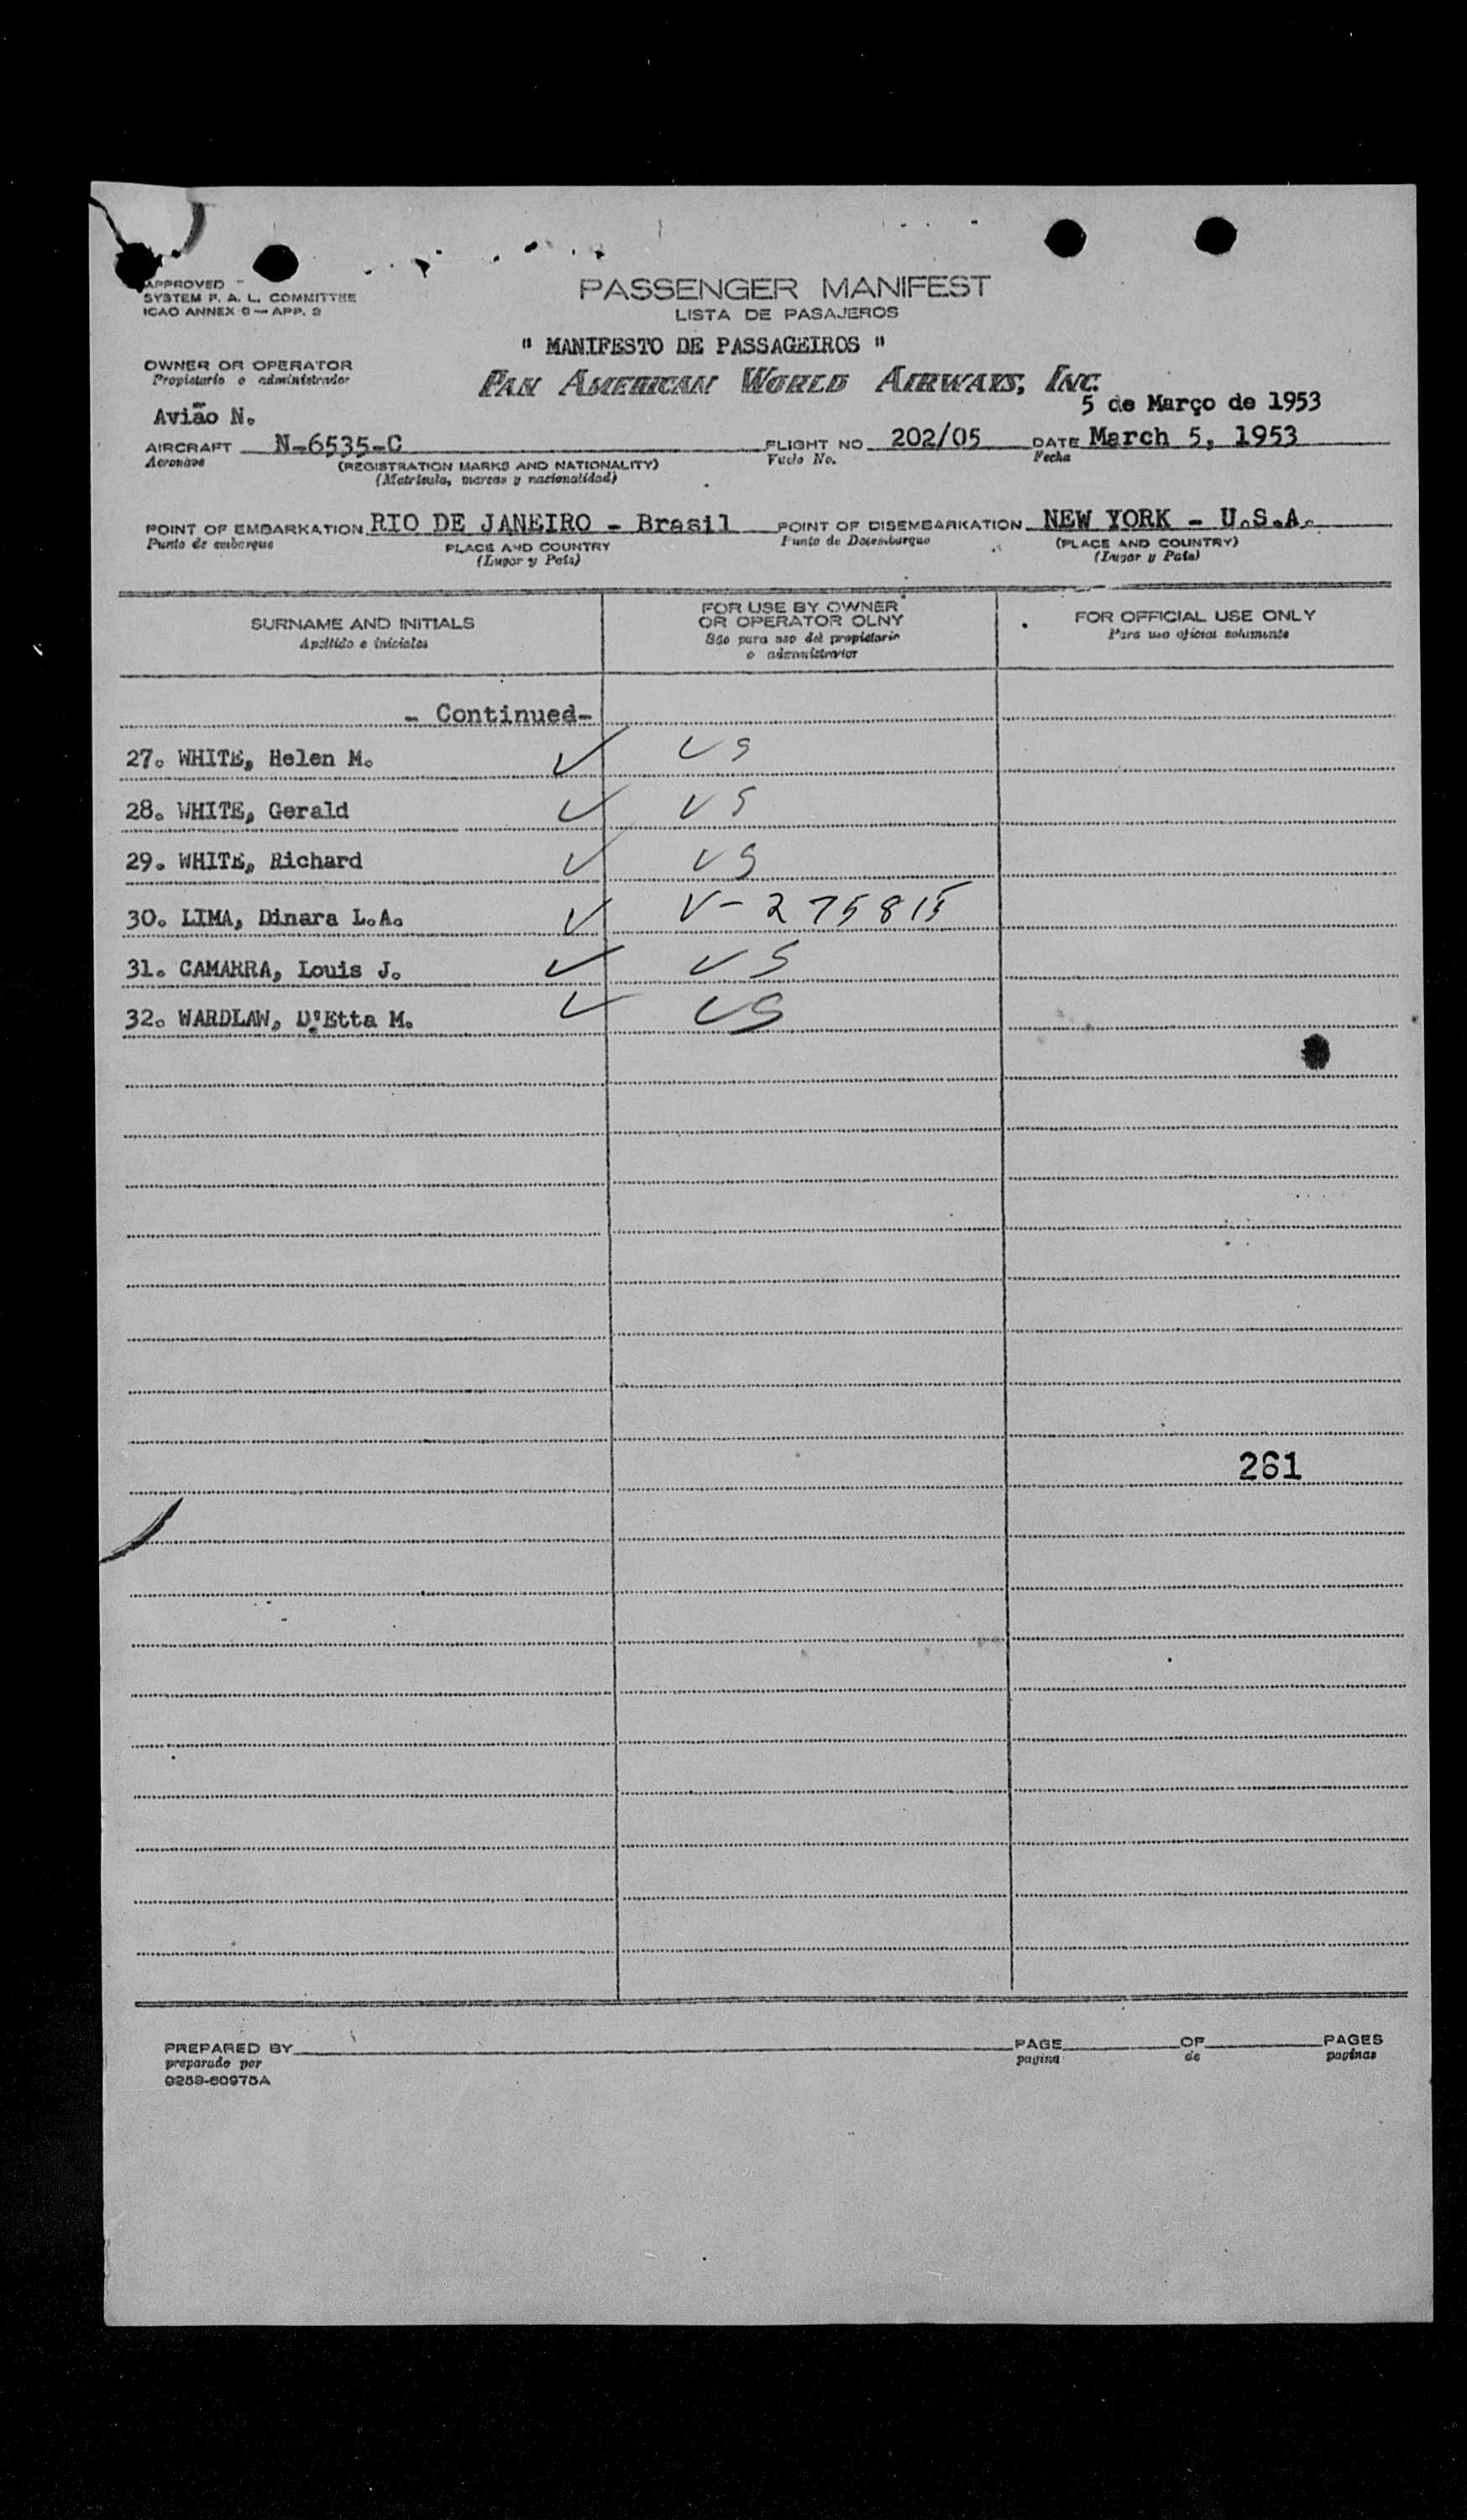 APPROVED
SYSTEM P. A. L. COMMITTEE
ICAO ANNEX 9 — APP. 2
PASSENGER MANIFEST
LISTA DE PASAJEROS
" MANIFESTO DE PASSAGEIROS "
OWNER OR OPERATOR
Propietario o administrador
PAN AMERICAN WORLD AIRWAYS, INC.
5 de Março de 1953
Avião N.
AIRCRAFT N-6535-C FLIGHT NO 202/05 DATE March 5, 1953
Aeronave (REGISTRATION MARKS AND NATIONALITY) Vuelo No. Fecha
(Matricula, marcas y nacionalidad)
POINT OF EMBARKATION RIO DE JANEIRO - Brasil POINT OF DISEMBARKATION NEW YORK - U.S.A.
Punto de embarque PLACE AND COUNTRY Punto de Desembarque (PLACE AND COUNTRY)
(Lugar y País) (Lugar y País)
SURNAME AND INITIALS
Apellido e iniciales
FOR USE BY OWNER
OR OPERATOR OLNY
Sóo para uso del propietario
o administrador
FOR OFFICIAL USE ONLY
Para uso oficial solamente
- Continued-
27. WHITE, Helen M. ✓ US
28. WHITE, Gerald ✓ US
29. WHITE, Richard ✓ US
30. LIMA, Dinara L.A. ✓ V-275815
31. CAMARRA, Louis J. ✓ US
32. WARDLAW, D'Etta M. ✓ US
261
PREPARED BY PAGE OF PAGES
preparado por pagina de paginas
9259-60975A